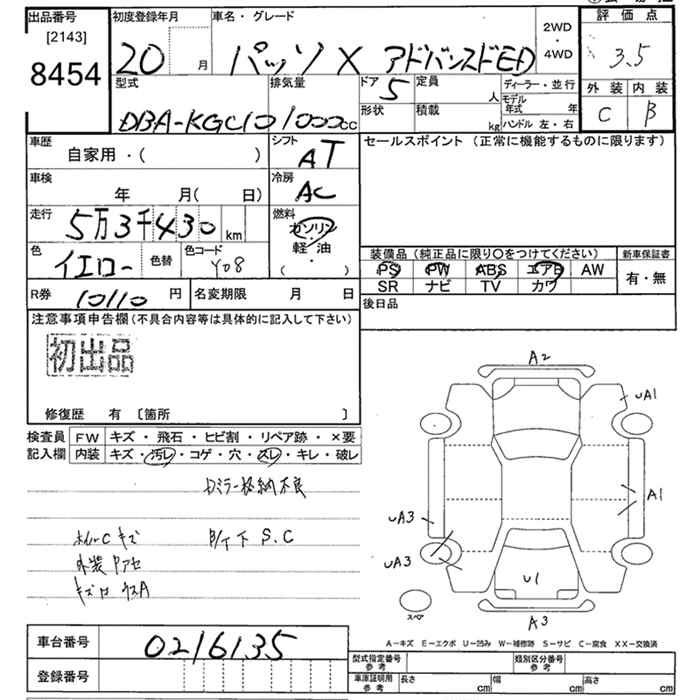 出品番号 初度登録年月 車名・グレード 2WD・4WD 評価点
[2143]
8454 20 月 パッソ X アドバンスドED 3.5
型式 排気量 ドア 5 定員 人 ディーラー・並行 外装 内装
DBA-KGC10 1000cc 形状 積載 kg モデル年式 年 C B
ハンドル 左・右
車歴 シフト セールスポイント (正常に機能するものに限ります)
自家用・( ) AT
車検 冷房
年 月( 日) AC
走行 燃料
5万3千430 km ガソリン
色 色替 色コード 軽油 装備品(純正品に限り○をつけてください) 新車保証書
イエロー Y08 ・ ( ) PS PW ABS エアB AW 有・無
SR ナビ TV カワ
R券 10110 円 名変期限 月 日 後日品
注意事項申告欄(不具合内容等は具体的に記入して下さい)
初出品
修復歴 有 [箇所 ]
検査員 FW キズ・飛石・ヒビ割・リペア跡・×要
記入欄 内装 キズ・汚レ・コゲ・穴・スレ・キレ・破レ
Dミラー格納不良
ホイルC キズ B/イ下 S.C
外装
A2
uA1
A1
uA3
uA3
u1
スペア
A3
A-キズ E-エクボ U-凹み W-補修跡 S-サビ C-腐食 XX-交換済
車台番号 0216135
登録番号
型式指定番号 参考 類別区分番号 参考
車庫証明用 参考 長さ cm 幅 cm 高さ cm